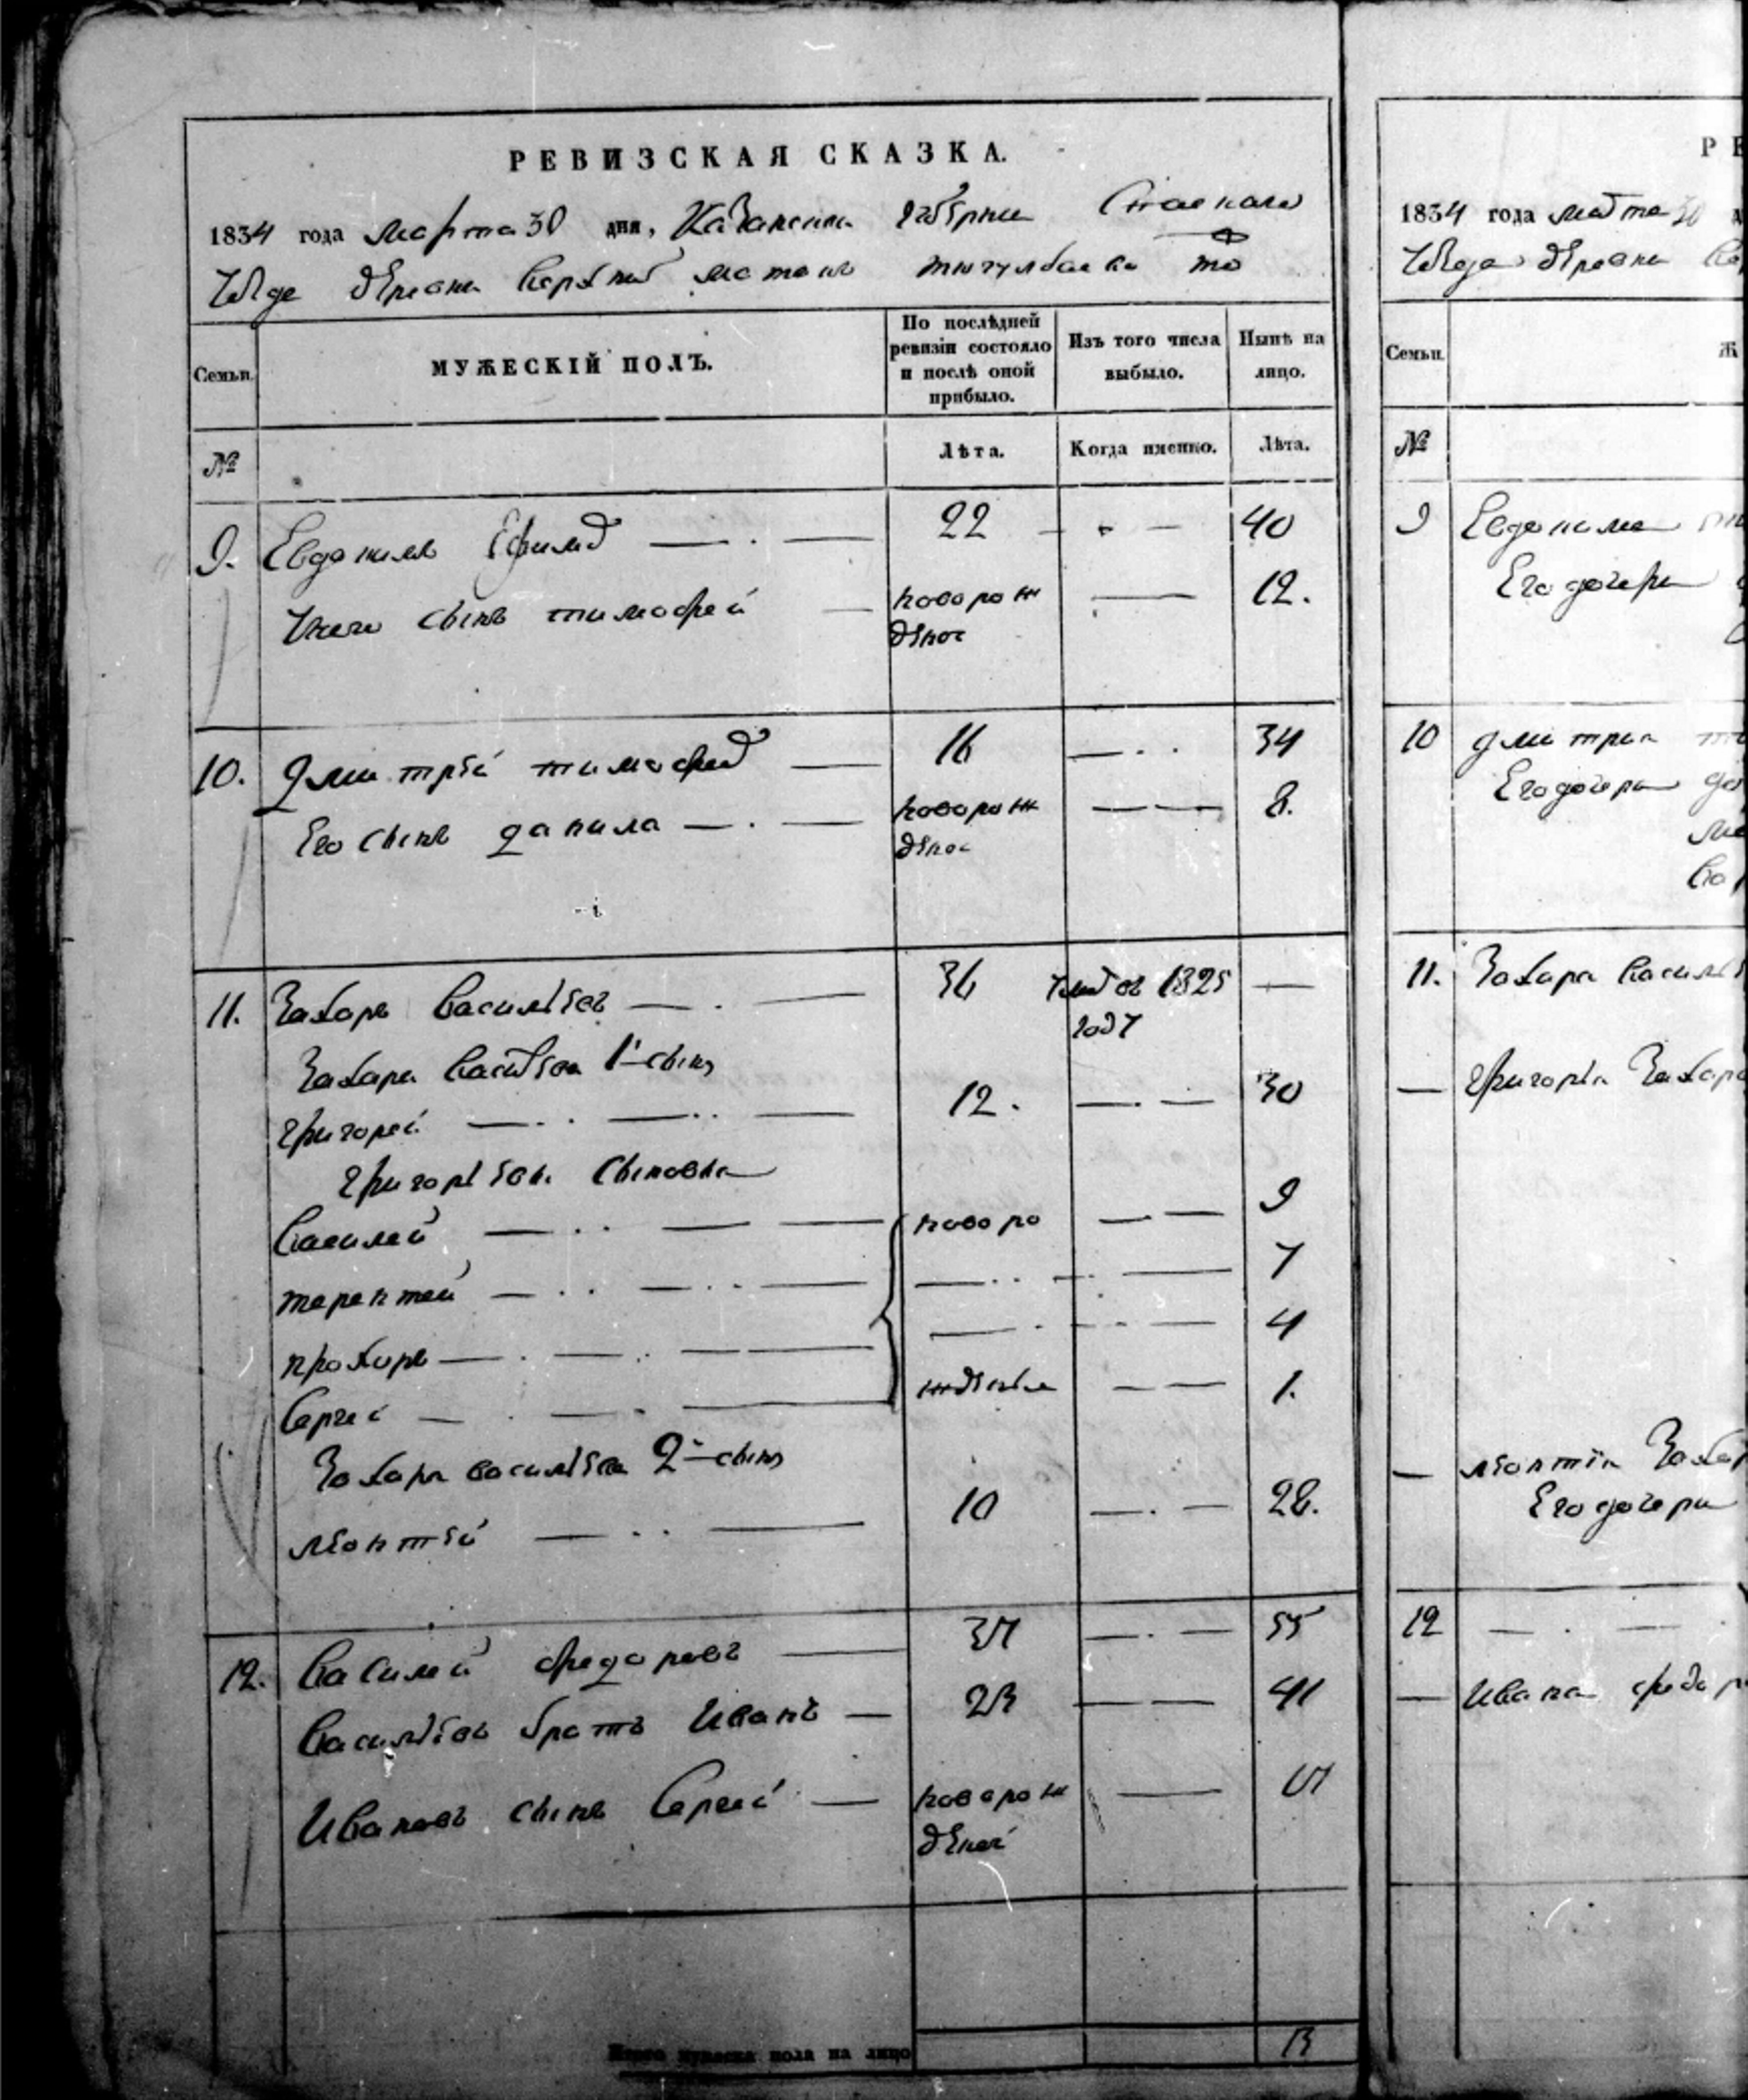 РЕВИЗСКАЯ СКАЗКА.
1834 года марта 30 дня, Казанской губернии Спаскаго
Уезда деревни верхней матак тюгулбаева то
Семьи. МУЖЕСКІЙ ПОЛЪ. По послѣдней ревизіи состояло и послѣ оной прибыло. Изъ того числа выбыло. Нынѣ на лицо.
№ Лѣта. Когда именно. Лѣта.
9. Евдокимъ Ефимов 22 40
У него сынъ тимофей новорож денос 12.
10. Дмитрей тимофеев 16 34
Его сынъ данила новорож денос 8.
11. Захаръ Васильевъ 36 умеръ въ 1825 году
Захара Васильева 1й сынъ
григорей 12. 30
григорьевы сыновья
Василей новоро 9
терентей 7
прохоръ 4
Сергей жденыя 1.
Захара васильева 2й сынъ
леонтей 10 28.
12. Василей федоровъ 37 55
Васильевъ братъ Иванъ 23 41
Ивановъ сынъ Сергей новорож деной
Итого мужеска пола на лицо 13
1834 года марта 30
Уезда деревни
Семьи.
№
9 Евдокима
Его дочери
10 дмитрия
Его дочери
11. Захара Василь
григорья Захар
леонтия Захар
Его дочери
12
Ивана федор